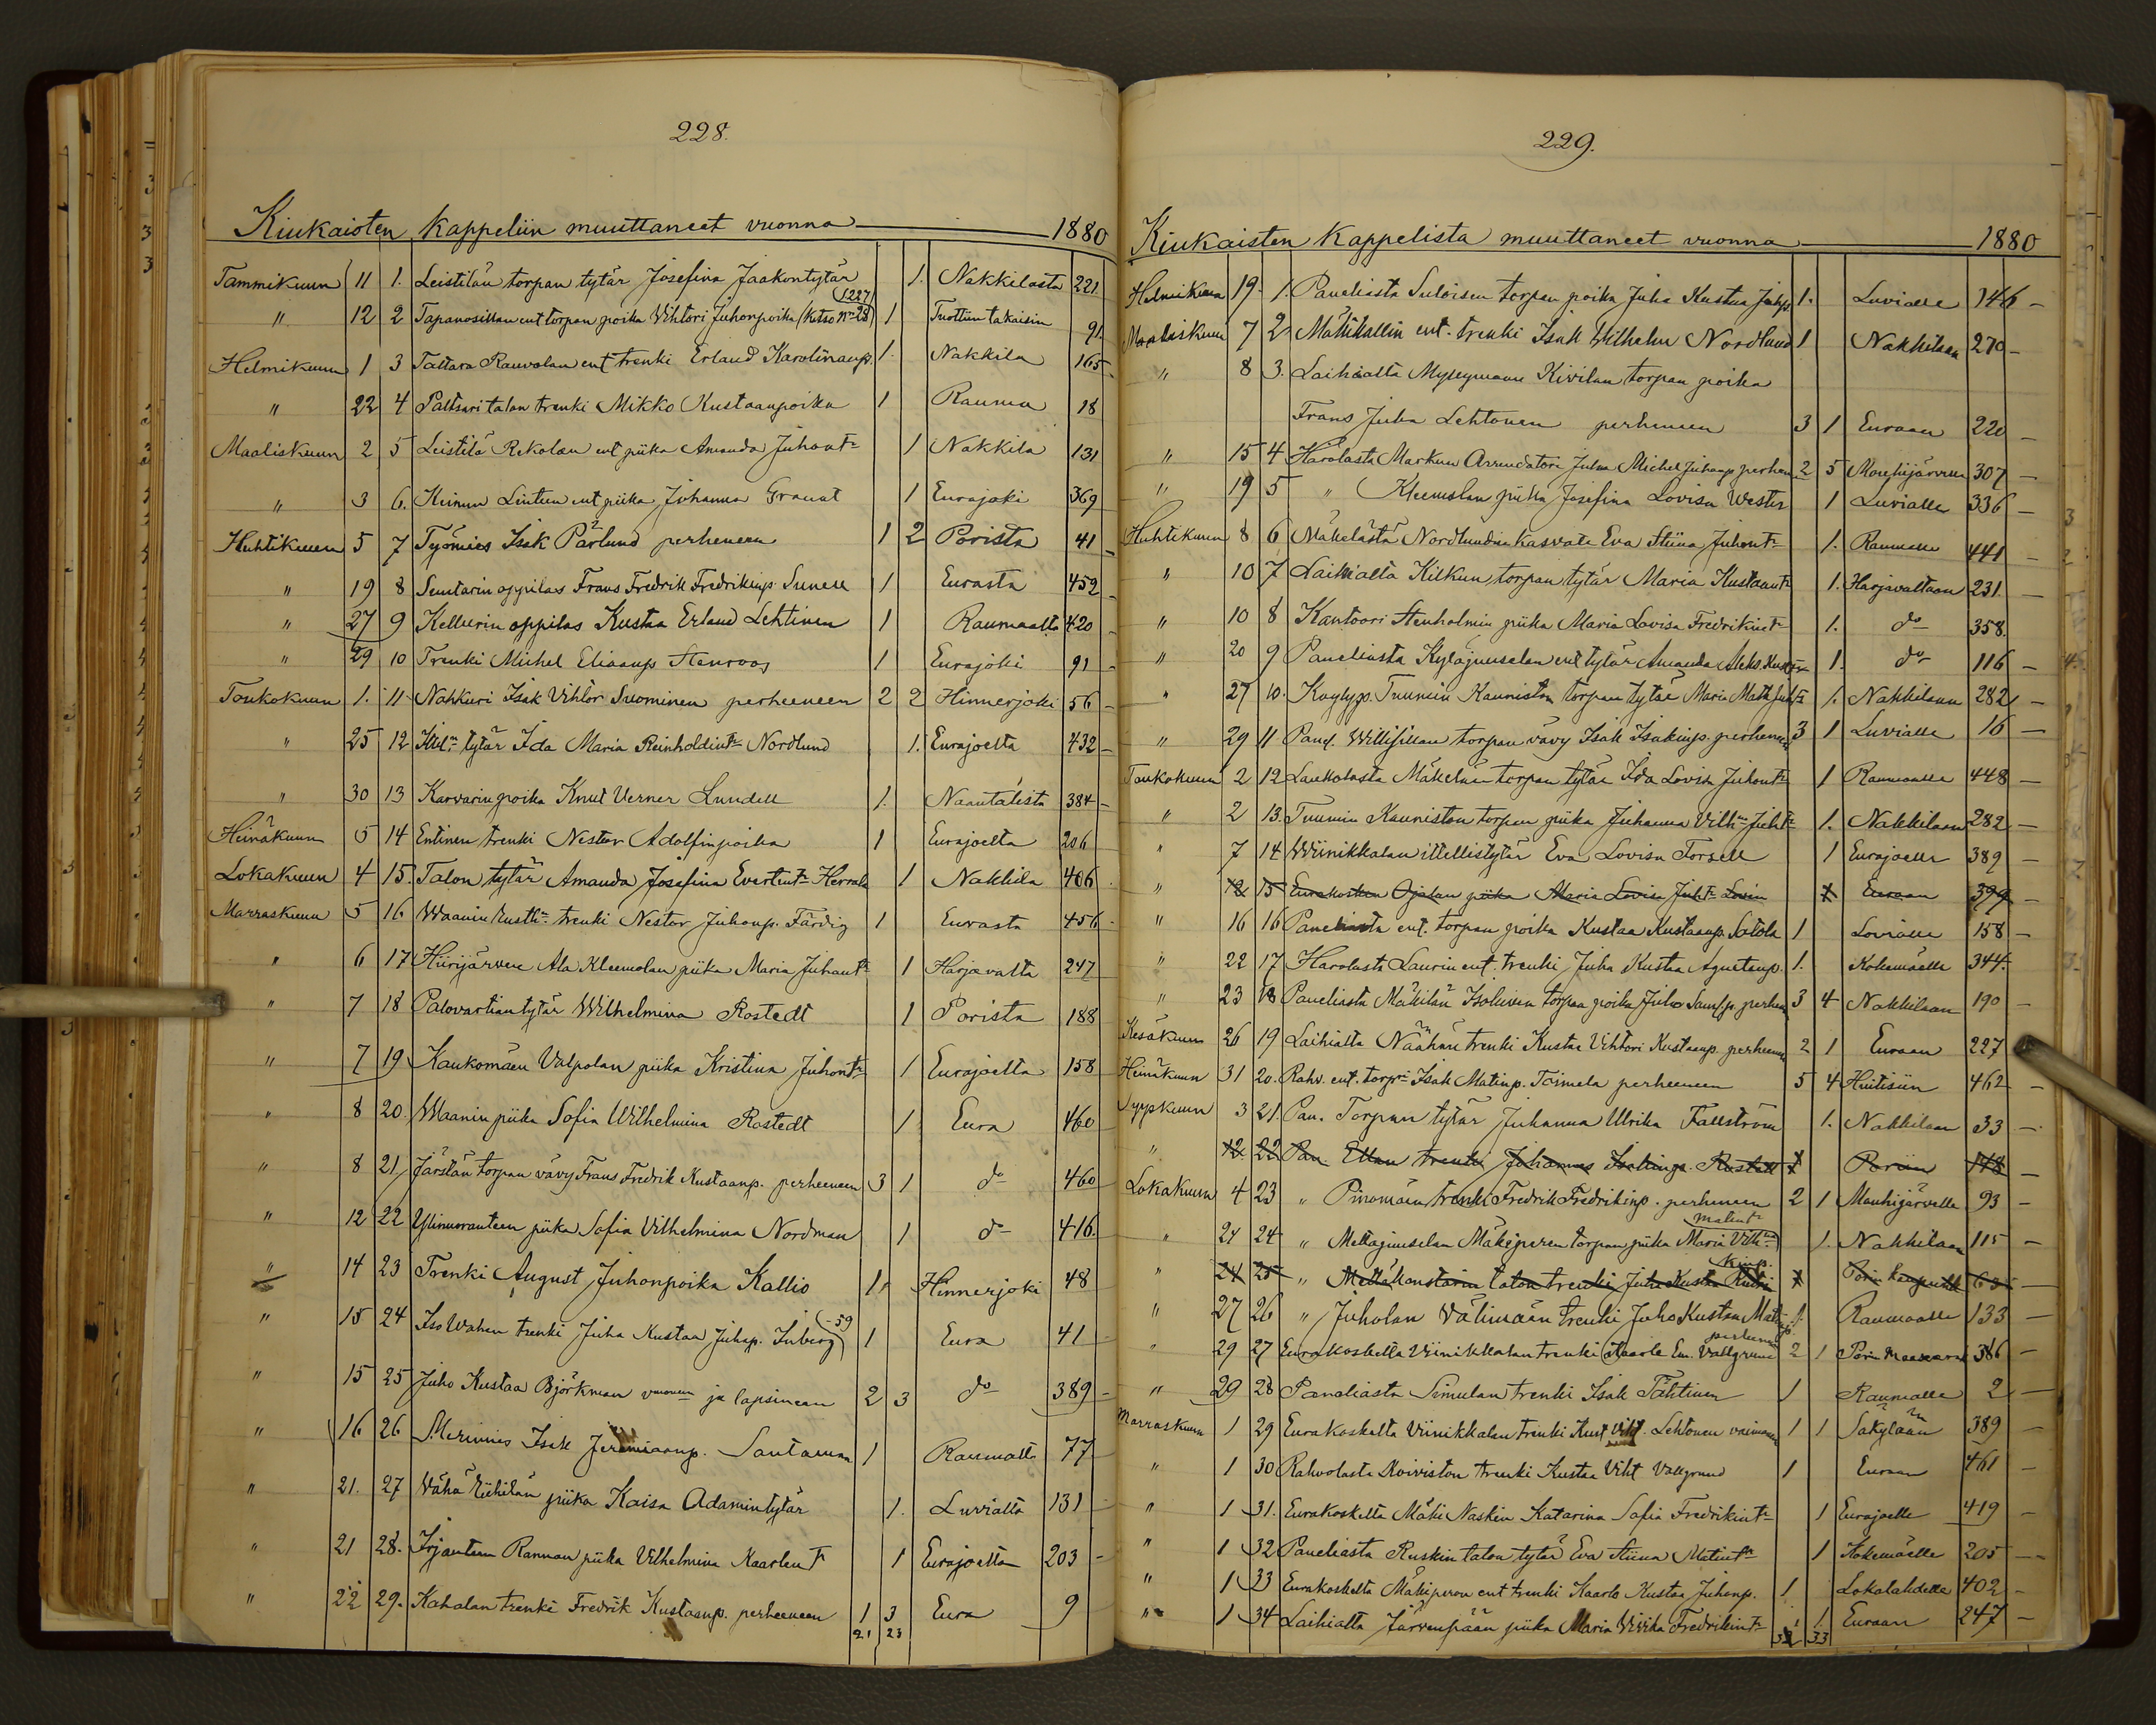 228.
Kiukaisten kappeliin muuttaneet vuonna 1880
Tammikuun 11 1. Leistilän torpan tytär Josefina Jaakontytär 1. Nakkilasta 221.
" 12 2 Tapanosillan ent torpan poika Vihtori Juhonpoika (katso Nro 28) 1 Tuottiin takaisin 91.
1227
Helmikuun 1 3 Tattara Rauvolan ent trenki Erland Karolinanp. 1. Nakkila 165
" 22 4 Paltsari talon trenki Mikko Kustaanpoika 1 Rauma 18
Maaliskuun 2 5 Leistilä Rekolan ent piika Amanda Juhont- 1 Nakkila 131
" 3 6. Keinun Lintun ent piika Johanna Granat 1 Eurajoki 369
Huhtikuun 5 7 Työmies Isak Pärlund perheneen 1 2 Porista 41
" 19 8 Suutarin oppilas Frans Fredrik Fredrikinp. Sunell 1 Eurasta 452
" 27 9 Kellurin oppilas Kustaa Erland Lehtinen 1 Raumaalta 420
" 29 10 Trenki Michel Eliaanp Stenroos 1 Eurajoki 91
Toukokuun 1. 11 Nahkuri Isak Vihtor Suominen perheeneen 2 2 Hinnerjoki 56
" 25 12 Itll. tytär Ida Maria Reinholdint- Nordlund 1. Eurajoelta 432
" 30 13 Karvarin poika Knut Verner Lundell 1. Naantalista 384
Heinäkuun 5 14 Entinen trenki Nestor Adolfinpoika 1 Eurajoelta 206
Lokakuun 4 15. Talon tytär Amanda Josefina Evertint- Herrala 1 Nakkila 406
Marraskuun 5 16 Waanin trenki Nestor Juhonp. Färdig 1 Eurasta 456
" 6 17 Hiirijärven Ala Kleemolan piika Maria Juhont- 1 Harjavalta 247
" 7 18 Palovartian tytär Wilhelmina Rostedt 1 Porista 188
" 7 19 Kaukomäen Valpolan piika Kristina Juhont- 1 Eurajoelta 158
" 8 20. Waanin piika Sofia Wilhelmina Rostedt 1 Eura 460
" 8 21 Järstän torpan vävy Frans Fredrik Kustaanp. perheeneen 3 1 do 460
" 12 22 Ylinuoranteen piika Sofia Vilhelmina Nordman 1 do 416.
" 14 23 Trenki August Juhonpoika Kallio 1 Hinnerjoki 48
" 15 24 Iso Wahen trenki Juha Kustaa Juhap. Inberg 1 Eura 41
-59
" 15 25 Juho Kustaa Björkman vaimon ja lapsineen 2 3 do 389
" 16 26 Merimies Isak Jeremiaanp. Santanen 1 Raumalta 77
" 21. 27 Vähä Riihilän piika Kaisa Adamintytär 1. Luvialta 131
" 21 28. Irjanteen Rannan piika Vilhelmina Kaarlent- 1 Eurajoelta 203
" 22 29. Kahalan trenki Fredrik Kustaanp. perheeneen 1 3 Eura 9
21 23
229.
Kiukaisten Kappelista muuttaneet vuonna 1880
Helmikuun 19. 1. Paneliasta Suloisen torpan poika Juha Kustaa Juhp. 1. Luvialle 146
Maaliskuun 7 2 Mäkikallin ent. trenki Isak Wilhelm Nordlund 1 Nakkilaan 270
" 8 3. Laihialta Myllymaan Kivilan torpan poika
Frans Juha Lehtonen perheneen 3 1 Euraan 220
" 15 4 Harolasta Markun Arrendatori Juha Michel Juhonp perhen 2 5 Mouhijärvelle 307
" 19 5 " Kleemolan piika Josefina Lovisa Wester 1 Luvialle 336
Huhtikuun 8 6 Mäkelästä Nordlundin kasvate Eva Stiina Juhont- 1. Raumalle 441
" 10 7 Laihialta Kilkun torpan tytär Maria Kustaant- 1. Harjavaltaan 231
" 10 8 Kantoori Stenholmin piika Maria Lovisa Fredrikint- 1. do 358.
" 20 9 Paneliasta Kyläjuuselan ent tytär Amanda Aleks. 1. do 116
" 27 10. Tuumin Kauniston torpan tytär Maria Math. 1. Nakkilaan 282
" 29 11 Panel. Willisillan torpan vävy Isak Isakinp. perhenen 3 1 Luvialle 16
Toukokuun 2 12 Laukolasta Mäkelän torpan tytär Ida Lovisa Juhont- 1 Raumaalle 448
" 2 13. Tuumin Kauniston torpan piika Juhanna Vilh. Juht- 1. Nakkilaan 282
" 7 14 Wiinikkalan itellistytär Eva Lovisa Torsell 1 Eurajoelle 389
" 12 15 Eurakosken Ojalan piika Maria Lovisa Juht- Lovin 1 Euraan 399
" 16 16 Paneliasta ent. torpan poika Kustaa Kustaanp. Satola 1 Luvialle 158
" 22 17 Harolasta Laurin ent. trenki Juha Kustaa Agnetanp. 1. Kokemäelle 344.
" 23 18 Paneliasta Mäkilän Isoluvun torpan poika Juho perhen 3 4 Nakkilaan 190
Kesäkuun 26 19 Laihialta Näähän trenki Kustaa Vihtori Kustaanp. perheneen 2 1 Euraan 227
Heinäkuun 31 20. Rahv. ent. torpri Isak Matinp. Toimela perheeneen 5 4 Huitisiin 462
Syyskuun 3 21. Pan. Torpan tytär Juhanna Ulrika Fallström 1. Nakkilaan 33
" 12. 22 Pan. Ellan trenki Johannes Isakinp. Rostedt 1 Poriin 118
Lokakuun 4 23 " Pinomäen trenki Fredrik Fredrikinp. perheneen 2 1 Mouhijärvelle 93
" 24 24 " Mettäjuuselan Mäkiperen torpan piika Maria Vilh. 1. Nakkilaan 115
matint-
" 24 25 " talon trenki Juha Kustaa 1 Porin kaupunki 63
" 27 26 " Juholan Välimään trenki Juho Kustaa Matinp. 1. Raumaalle 133
" 29 27 Eurakoskelta Viinikkalan trenki Kaarle Em. Vallgren 2 1 Porin maaseura 386
perheneen
" 29 28 Paneliasta Simulan trenki Isak Tähtinen 1 Raumalle 2
Marraskuun 1 29 Eurakoskelta Viinikkalan trenki Kust Vikt. Lehtonen vaimoneen 1 1 Säkylään 389
" 1 30 Rahvolasta Koiviston trenki Kustaa Viht Vallgrund 1 Euraan 461
" 1 31. Eurakoskelta Mäki Naskin Katarina Sofia Fredrikint- 1 Eurajoelle 419
" 1 32 Paneliasta Ruskin talon tytär Eva Stiina Matint- 1 Kokemäelle 205
" 1 33 Eurakoskelta Mäkiperon ent trenki Kaarlo Kustaa Juhonp. 1 Lokalahdelle 402
" 1 34 Laihialta Järvenpään piika Maria Wivika Fredrikint- 1 Euraan 247
33